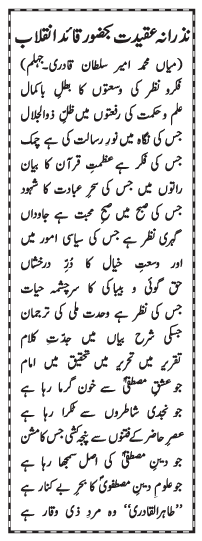 نذرانہ عقیدت بحضور قائد انقلاب
(میاں محمد امیر سلطان قادری-جہلم)
فکر و نظر کی وسعتوں کا بطلِ باکمال
علم و حکمت کی رفعتوں میں ظلِّ ذوالجلال
جس کی نگاہ میں نورِ رسالت کی ہے چمک
جس کی فکر ہے عظمتِ قرآن کا بیان
راتوں میں جس کی سحر عبادت کا شہود
جس کی صبح میں صبحِ محبت ہے جاوداں
گہری نظر ہے جس کی سیاسی امور میں
اور وسعتِ خیال کا دُرِّ درخشاں
حق گوئی و بیباکی کا سرچشمہ حیات
جس کی نظر ہے وحدت ملی کی ترجمان
جسکی شرح بیاں میں جدّتِ کلام
تقریر میں تحریر میں تحقیق میں امام
جو عشقِ مصطفیٰؐ سے خون گرما رہا ہے
جو نجدی شاطروں سے ٹکرا رہا ہے
عصر حاضر کے فتنوں سے پنجہ کشی جس کا مشن
جو دینِ مصطفیٰؐ کی اصل سمجھا رہا ہے
جو علومِ دینِ مصطفویؐ کا بحرِ بے کنار ہے
”طاہرالقادری“ وہ مردِ ذی وقار ہے